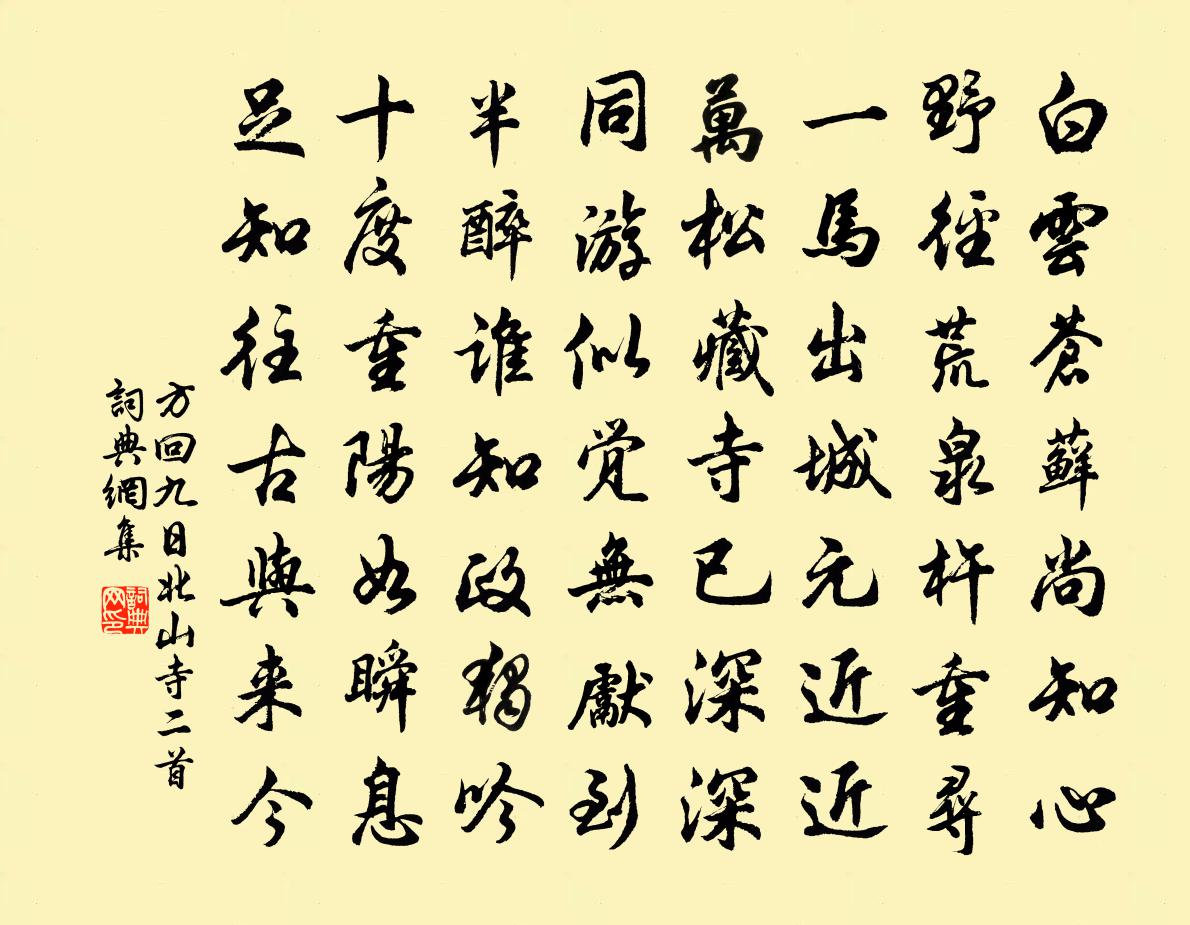 白雲蒼蘚尚知心
野徑荒泉杵重尋
一馬出城元近近
萬松藏寺已深深
同游似覚無獻到
半醉誰知政獨吟
十度重陽如瞬息
足知往古與来今
方回九日北山寺二首
詞典網集
詞典网印